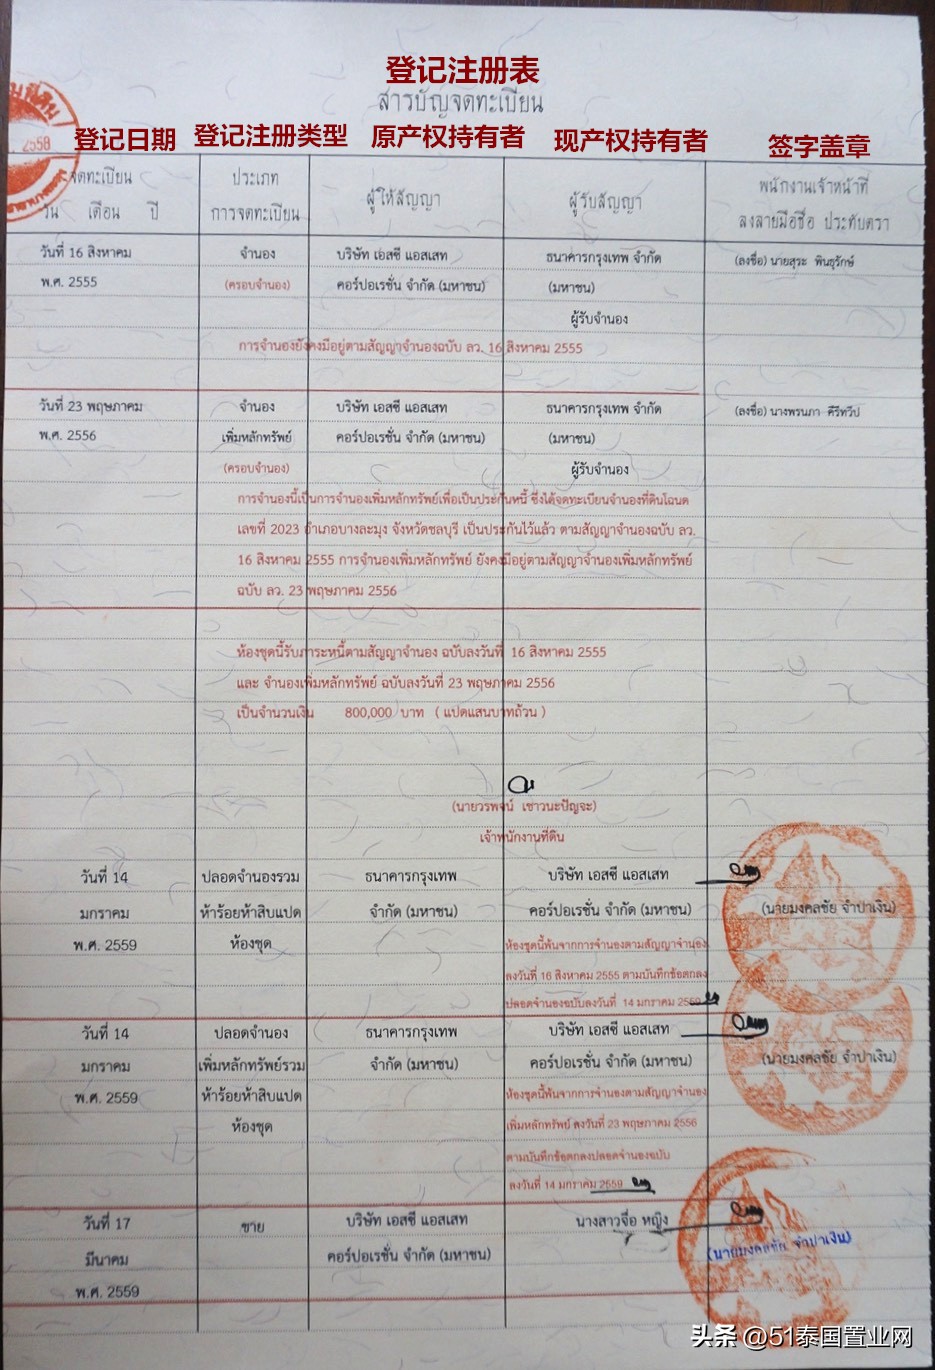 登记注册表
สารบัญจดทะเบียน
登记日期 登记注册类型 原产权持有者 现产权持有者 签字盖章
2558
จดทะเบียน
วัน เดือน ปี
ประเภท
การจดทะเบียน
ผู้ให้สัญญา
ผู้รับสัญญา
พนักงานเจ้าหน้าที่
ลงลายมือชื่อ ประทับตรา
วันที่ 16 สิงหาคม จำนอง บริษัท เอสซี แอสเสท ธนาคารกรุงเทพ จำกัด (ลงชื่อ) นายสุระ พินธุรักษ์
พ.ศ. 2555 (ครอบจำนอง) คอร์ปอเรชั่น จำกัด (มหาชน) (มหาชน)
ผู้รับจำนอง
การจำนองยังคงมีอยู่ตามสัญญาจำนองฉบับ ลว. 16 สิงหาคม 2555
วันที่ 23 พฤษภาคม จำนอง บริษัท เอสซี แอสเสท ธนาคารกรุงเทพ จำกัด (ลงชื่อ) นางพรนภา คีรีทวีป
พ.ศ. 2556 เพิ่มหลักทรัพย์ คอร์ปอเรชั่น จำกัด (มหาชน) (มหาชน)
(ครอบจำนอง) ผู้รับจำนอง
การจำนองนี้เป็นการจำนองเพิ่มหลักทรัพย์เพื่อเป็นประกันหนี้ ซึ่งได้จดทะเบียนจำนองที่ดินโฉนด
เลขที่ 2023 อำเภอบางละมุง จังหวัดชลบุรี เป็นประกันไว้แล้ว ตามสัญญาจำนองฉบับ ลว.
16 สิงหาคม 2555 การจำนองเพิ่มหลักทรัพย์ ยังคงมีอยู่ตามสัญญาจำนองเพิ่มหลักทรัพย์
ฉบับ ลว. 23 พฤษภาคม 2556
ห้องชุดนี้รับภาระหนี้ตามสัญญาจำนอง ฉบับลงวันที่ 16 สิงหาคม 2555
และ จำนองเพิ่มหลักทรัพย์ ฉบับลงวันที่ 23 พฤษภาคม 2556
เป็นจำนวนเงิน 800,000 บาท ( แปดแสนบาทถ้วน )
(นายวรพจน์ เชาวนะปัญจะ)
เจ้าพนักงานที่ดิน
วันที่ 14 ปลอดจำนองรวม ธนาคารกรุงเทพ บริษัท เอสซี แอสเสท
มกราคม ห้าร้อยห้าสิบแปด จำกัด (มหาชน) คอร์ปอเรชั่น จำกัด (มหาชน) (นายมงคลชัย จำปาเงิน)
พ.ศ. 2559 ห้องชุด ห้องชุดนี้พ้นจากการจำนองตามสัญญาจำนอง
ลงวันที่ 16 สิงหาคม 2555 ตามบันทึกข้อตกลง
ปลอดจำนองฉบับลงวันที่ 14 มกราคม 2559
วันที่ 14 ปลอดจำนอง ธนาคารกรุงเทพ บริษัท เอสซี แอสเสท
มกราคม เพิ่มหลักทรัพย์รวม จำกัด (มหาชน) คอร์ปอเรชั่น จำกัด (มหาชน) (นายมงคลชัย จำปาเงิน)
พ.ศ. 2559 ห้าร้อยห้าสิบแปด ห้องชุดนี้พ้นจากการจำนองตามสัญญาจำนอง
ห้องชุด เพิ่มหลักทรัพย์ ลงวันที่ 23 พฤษภาคม 2556
ตามบันทึกข้อตกลงปลอดจำนองฉบับ
ลงวันที่ 14 มกราคม 2559
วันที่ 17 ขาย บริษัท เอสซี แอสเสท นางสาวจื่อ หญิง
มีนาคม คอร์ปอเรชั่น จำกัด (มหาชน) (นายมงคลชัย จำปาเงิน)
พ.ศ. 2559
头条 @51泰国置业网